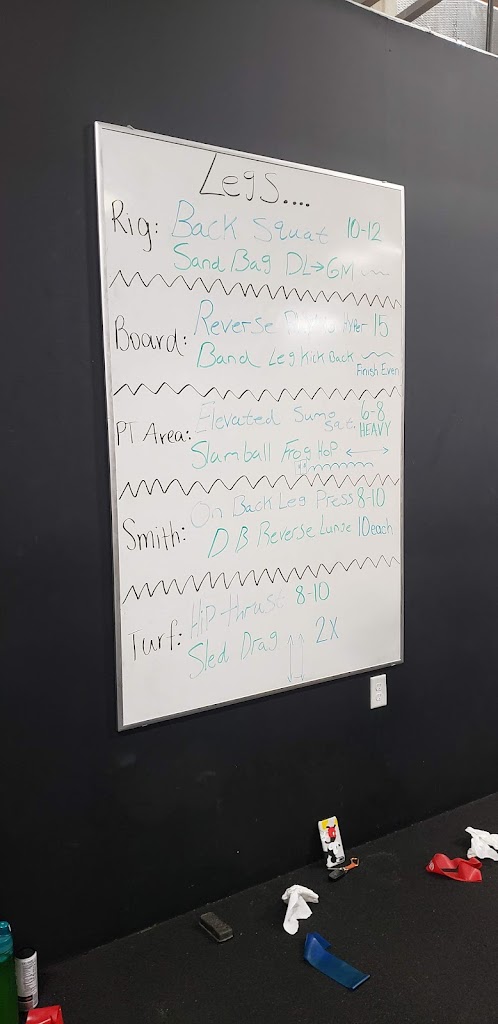 Legs....
Rig: Back Squat 10-12
Sand Bag DL→GM
Board: Reverse Hyper 15
Band Leg Kick Back
Finish Even
PT Area: Elevated Sumo Sqt. 6-8
HEAVY
Slamball Frog HoP ↔
Smith: On Back Leg Press 8-10
DB Reverse Lunge 10 each
Turf: Hip-thrust 8-10
Sled Drag 2X